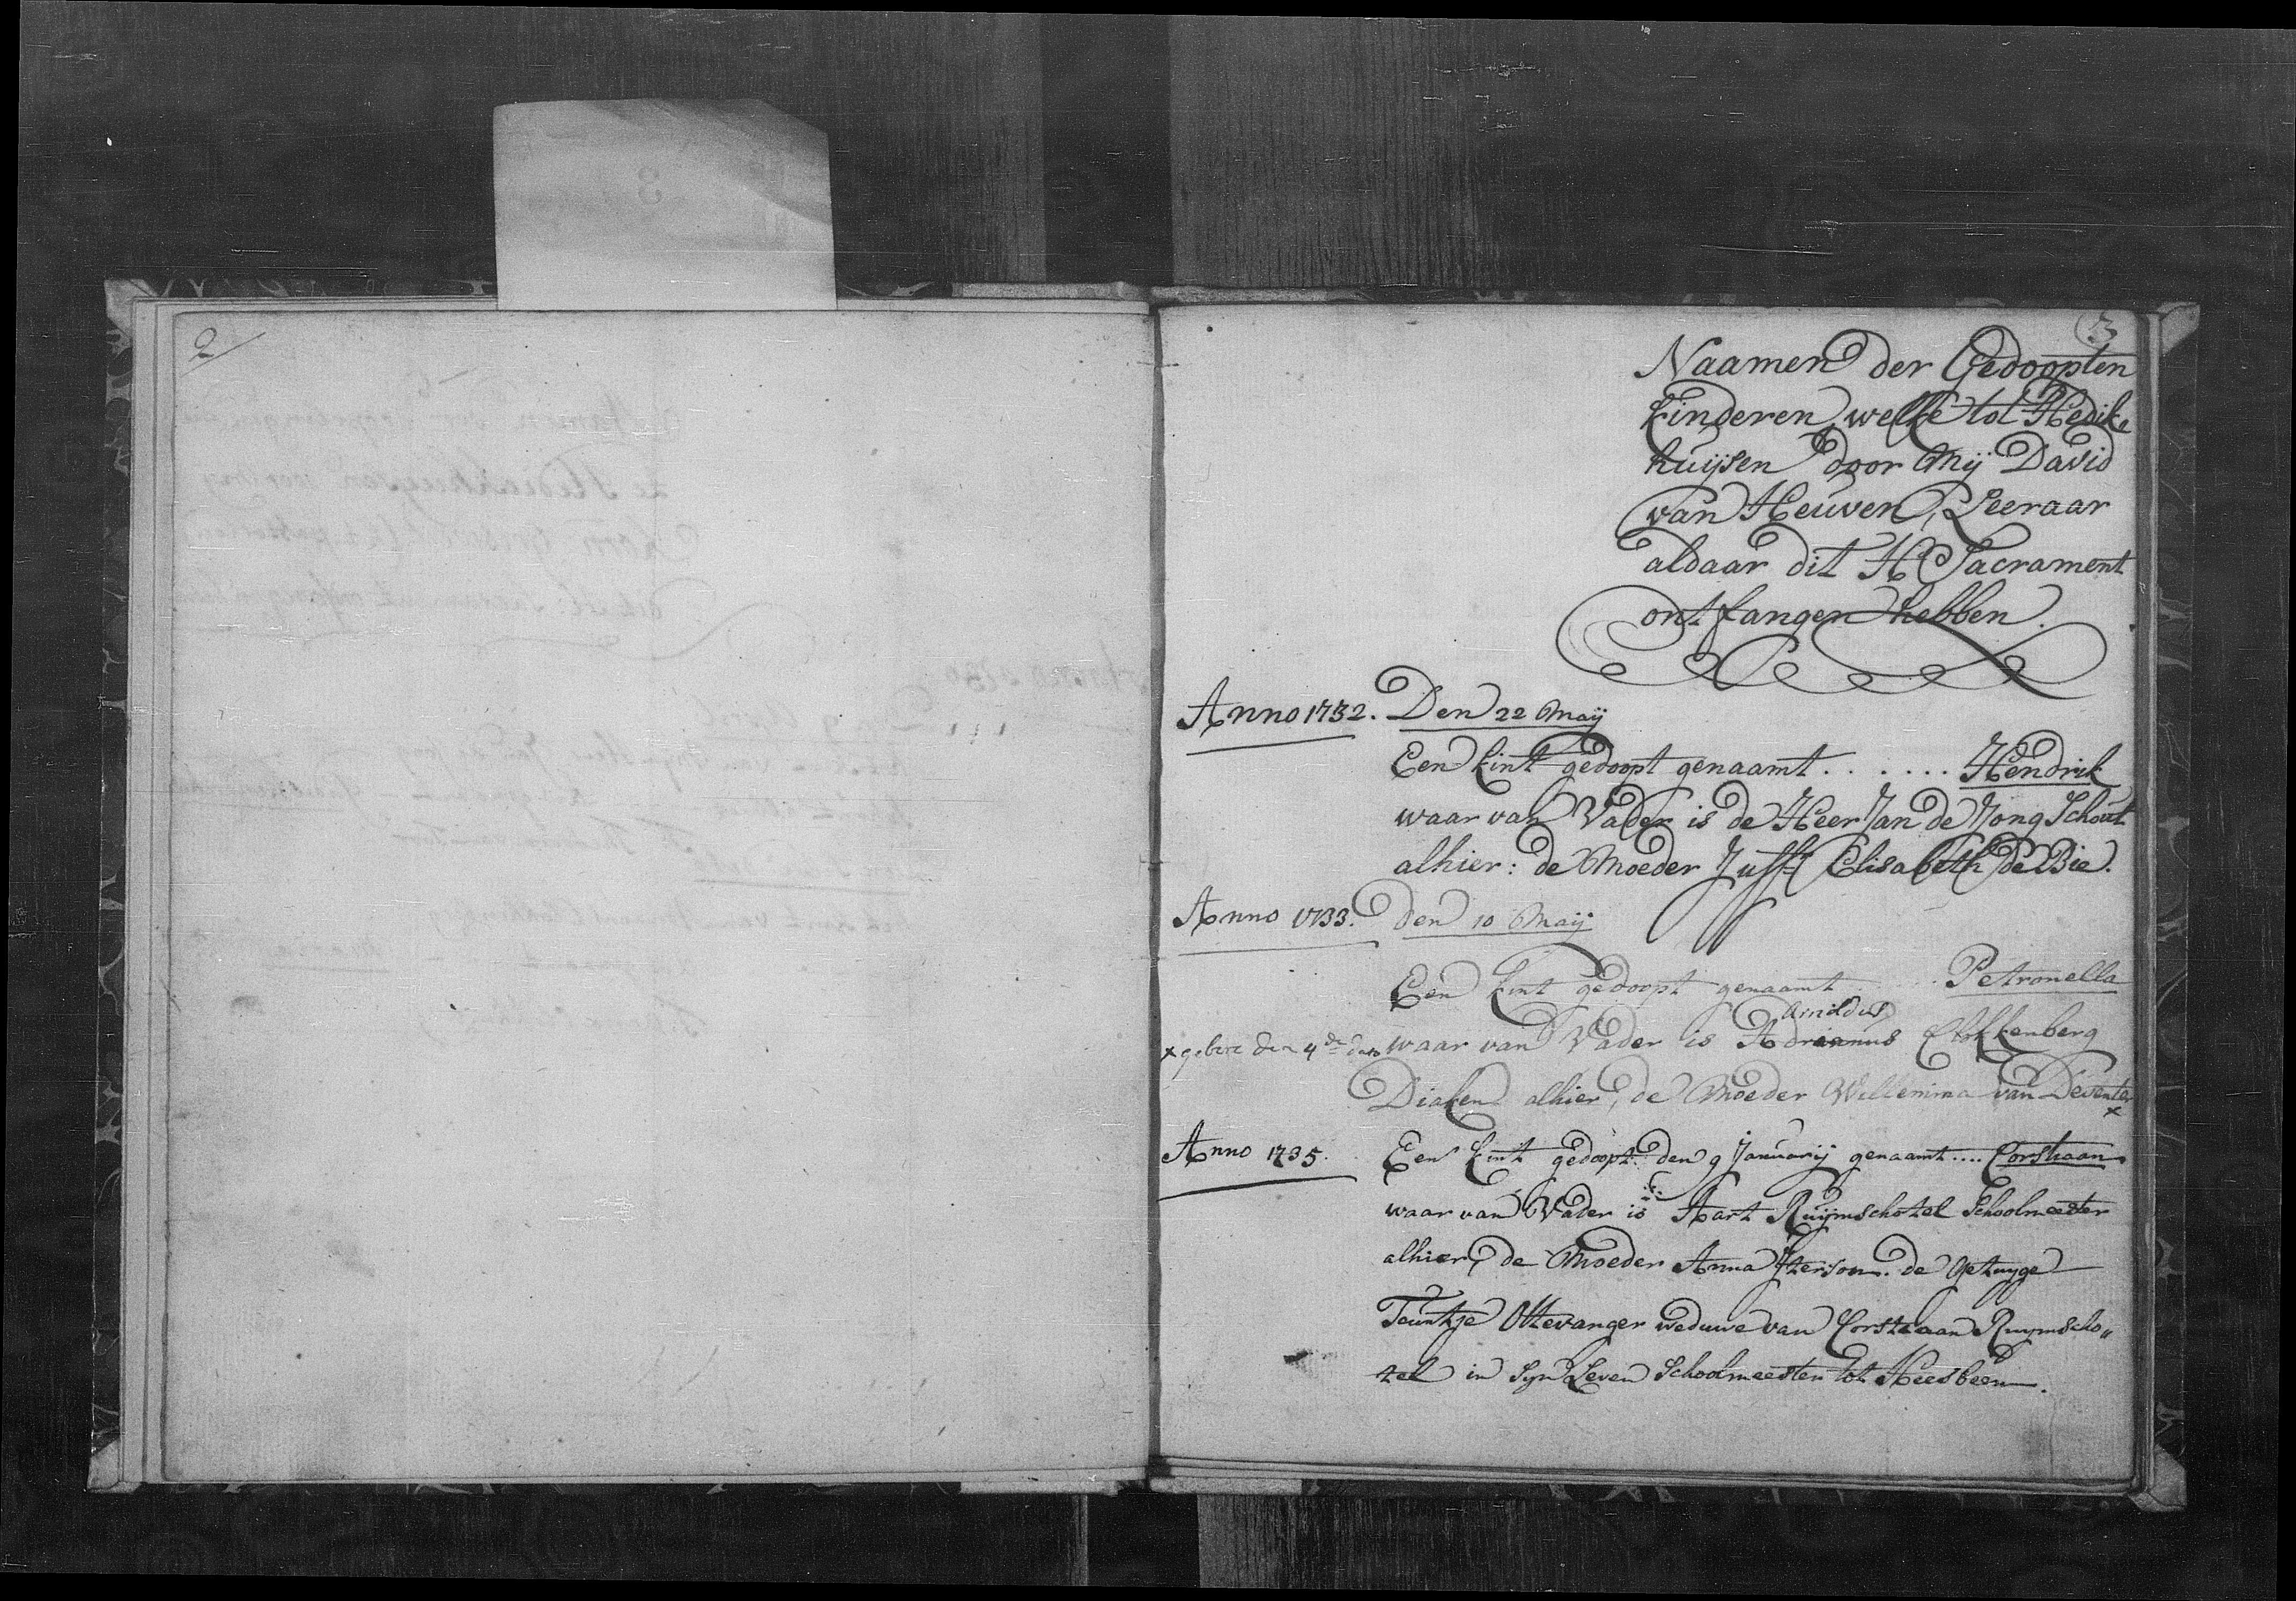 2
3
Naamen der Gedoopten
kinderen, welke tot Hedik„
huijsen door mij David
van Heuven, Leeraar
aldaar dit H Sacrament
ontfangen hebben.
Anno 1732. Den 22 Maij
Een kint gedoopt genaamt . . . . . . Hendrik
waar van Vader is de Heer Jan de Jong Schout
alhier: de Moeder Juffr Elisabeth de Bie.
Anno 1733. Den 10 Maij
Een kint gedoopt genaamt . . . . . Petronella
Arnoldus
x gebore den 4de waar van Vader is Adrianus Clokkenberg
Diaken alhier, de Moeder Willemina van Deventer x
Anno 1735. Een kint gedoopt: den 9 Januarij genaamt .... Corstiaan
waar van Vader is Aart Ruijmschotel Schoolmeester
alhier, de Moeder Anna Iterson. de Getuyge
Teuntje Ottevanger weduwe van Corstiaan Ruymscho„
tel in Syn Leven Schoolmeester tot Heesbeen.